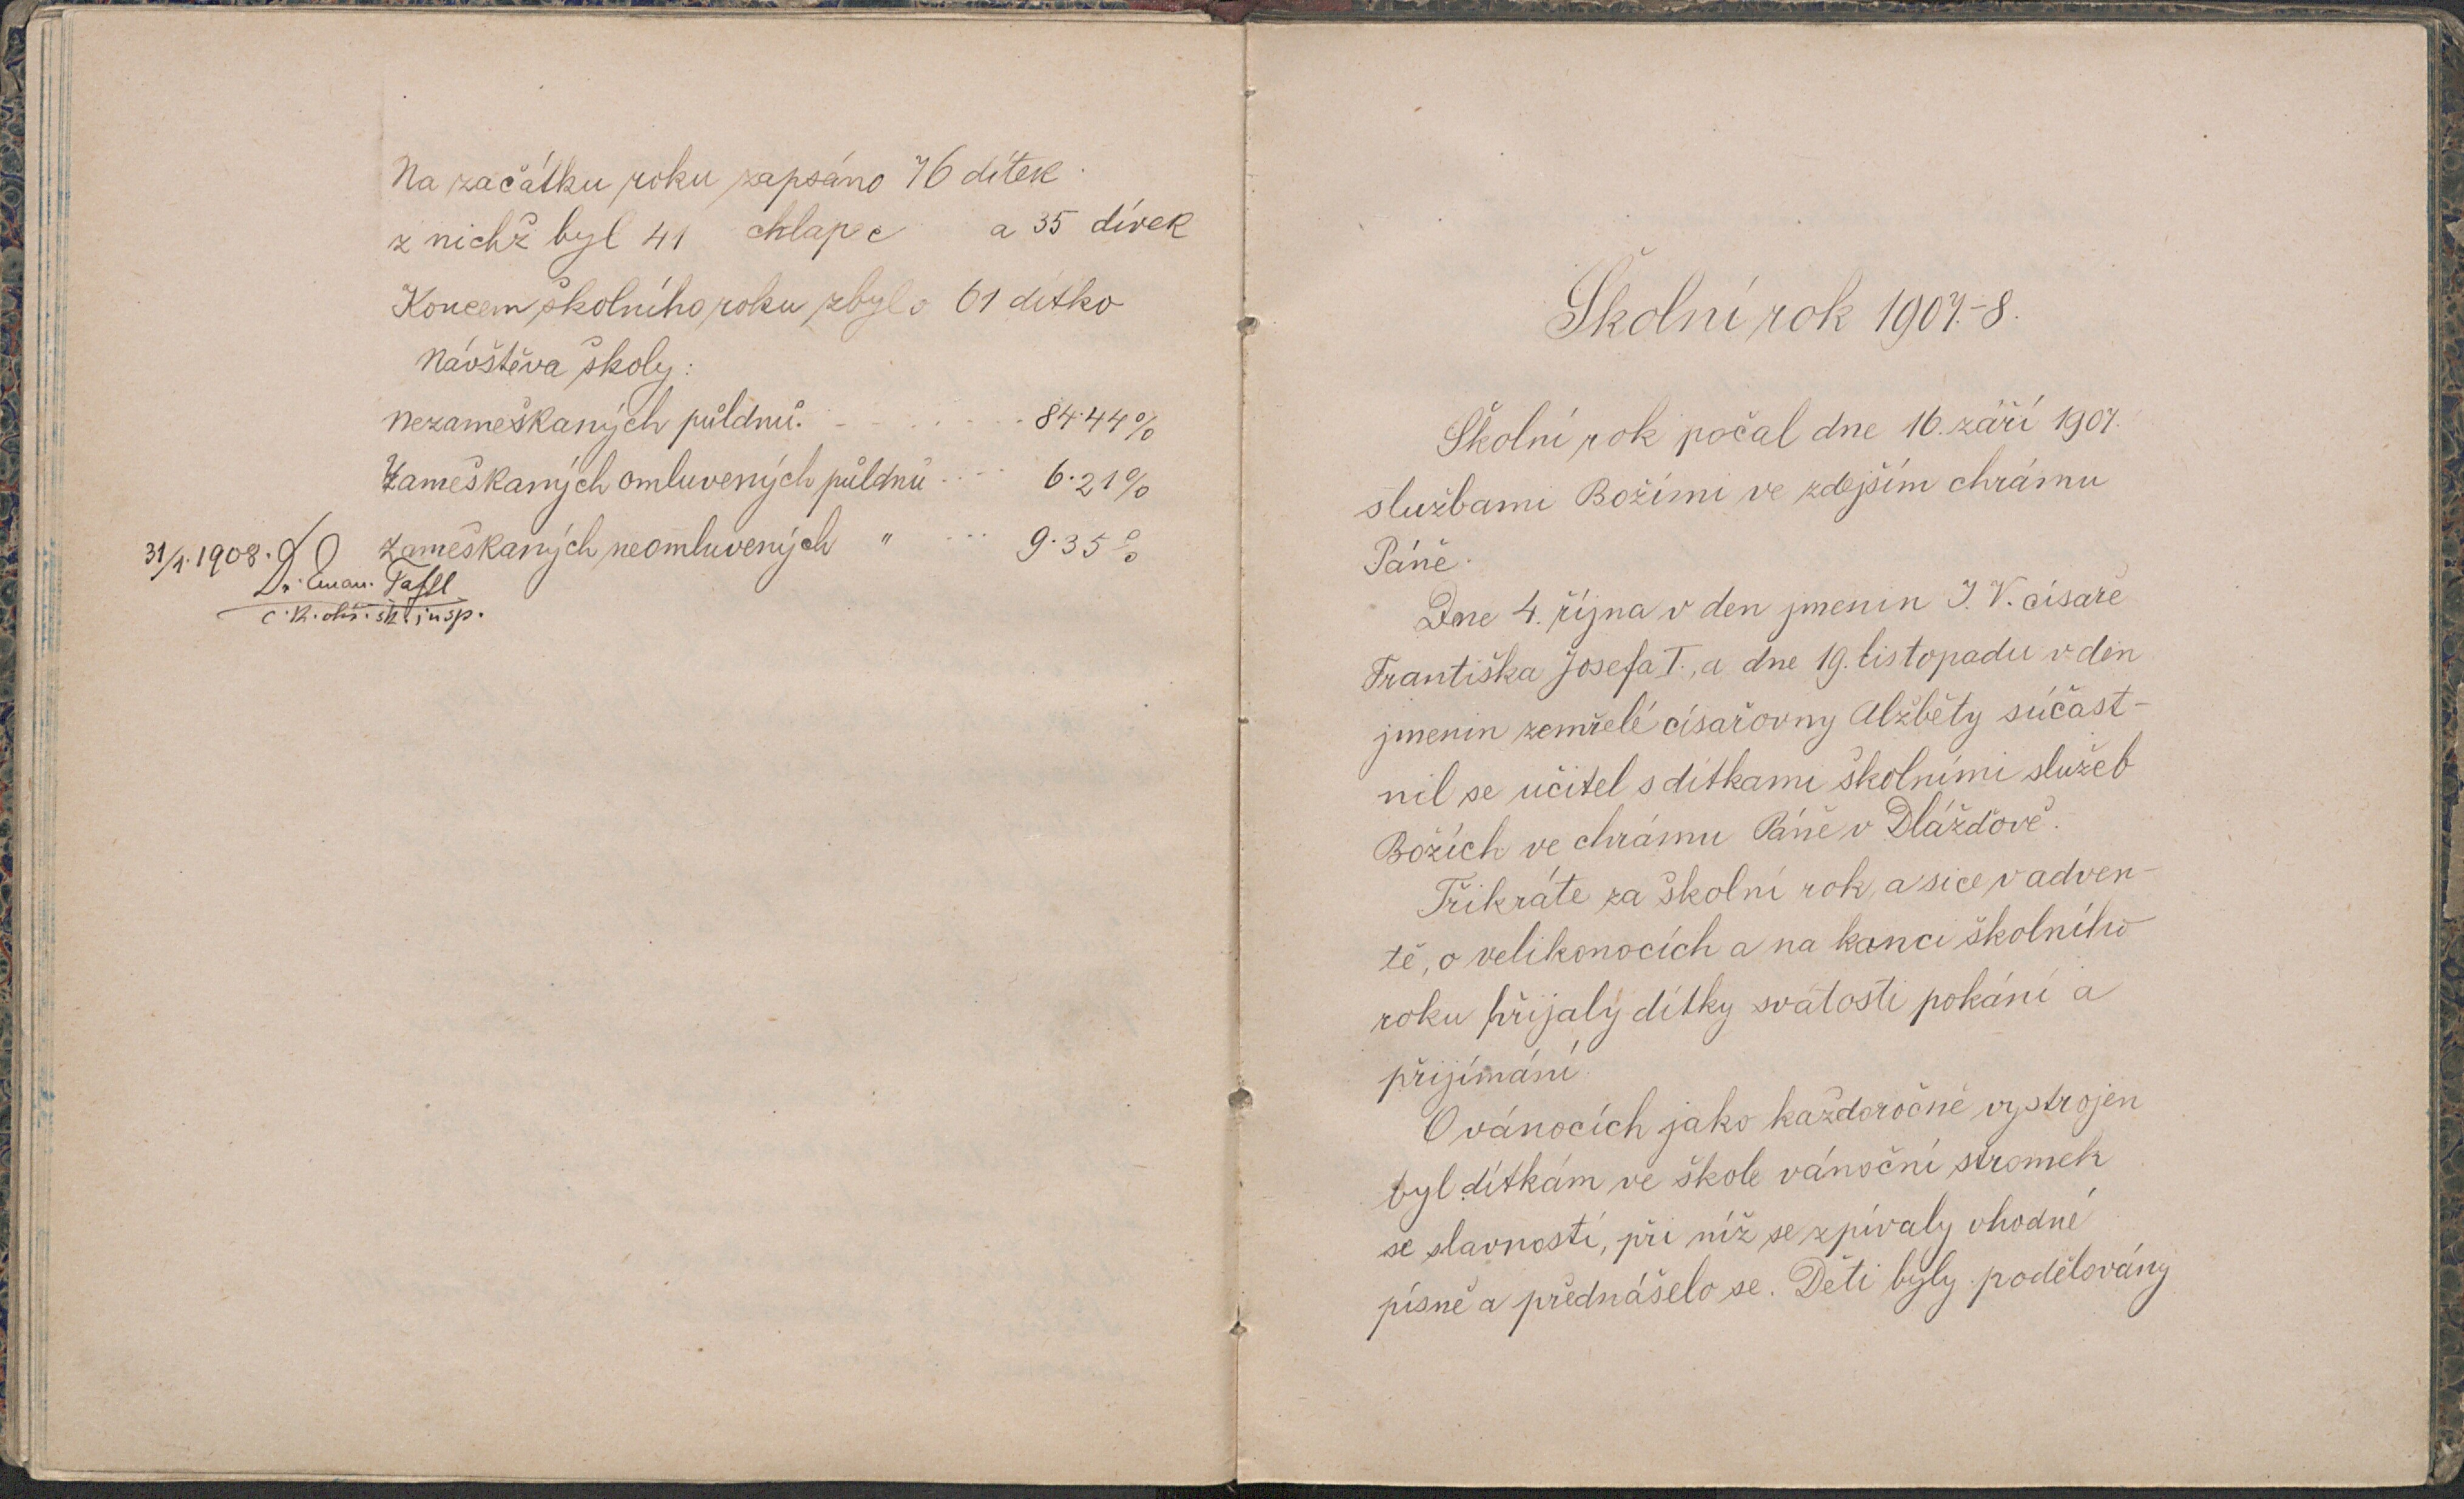 Na začátku roku zapsáno 76 dítek.
z nichž byl 41 chlapec a 35 dívek
Koncem školního roku zbylo 61 dítko
Návštěva školy:
Nezameškaných půldnů. - - - - - - - 84.44%
Zameškaných omluvených půldnů .... 6.21%
Zameškaných neomluvených " ... 9.35%
31/1. 1908.
Dr. Eman. Taftl
c. k. okr. šk. insp.
Školní rok 1907.-8.
Školní rok počal dne 16. září 1907.
službami Božími ve zdejším chrámu
Páně.
Dne 4. října v den jmenin J. V. císaře
Františka Josefa I., a dne 19. listopadu v den
jmenin zemřelé císařovny Alžběty súčast-
nil se učitel s dítkami školními služeb
Božích ve chrámu Páně v Dlážďově.
Třikráte za školní rok, a sice v adven-
tě, o velikonocích a na konci školního
roku přijaly dítky svátosti pokání a
přijímání.
O vánocích jako každoročně vystrojen
byl dítkám ve škole vánoční stromek
se slavností, při níž se zpívaly vhodné
písně a přednášelo se. Děti byly podělovány